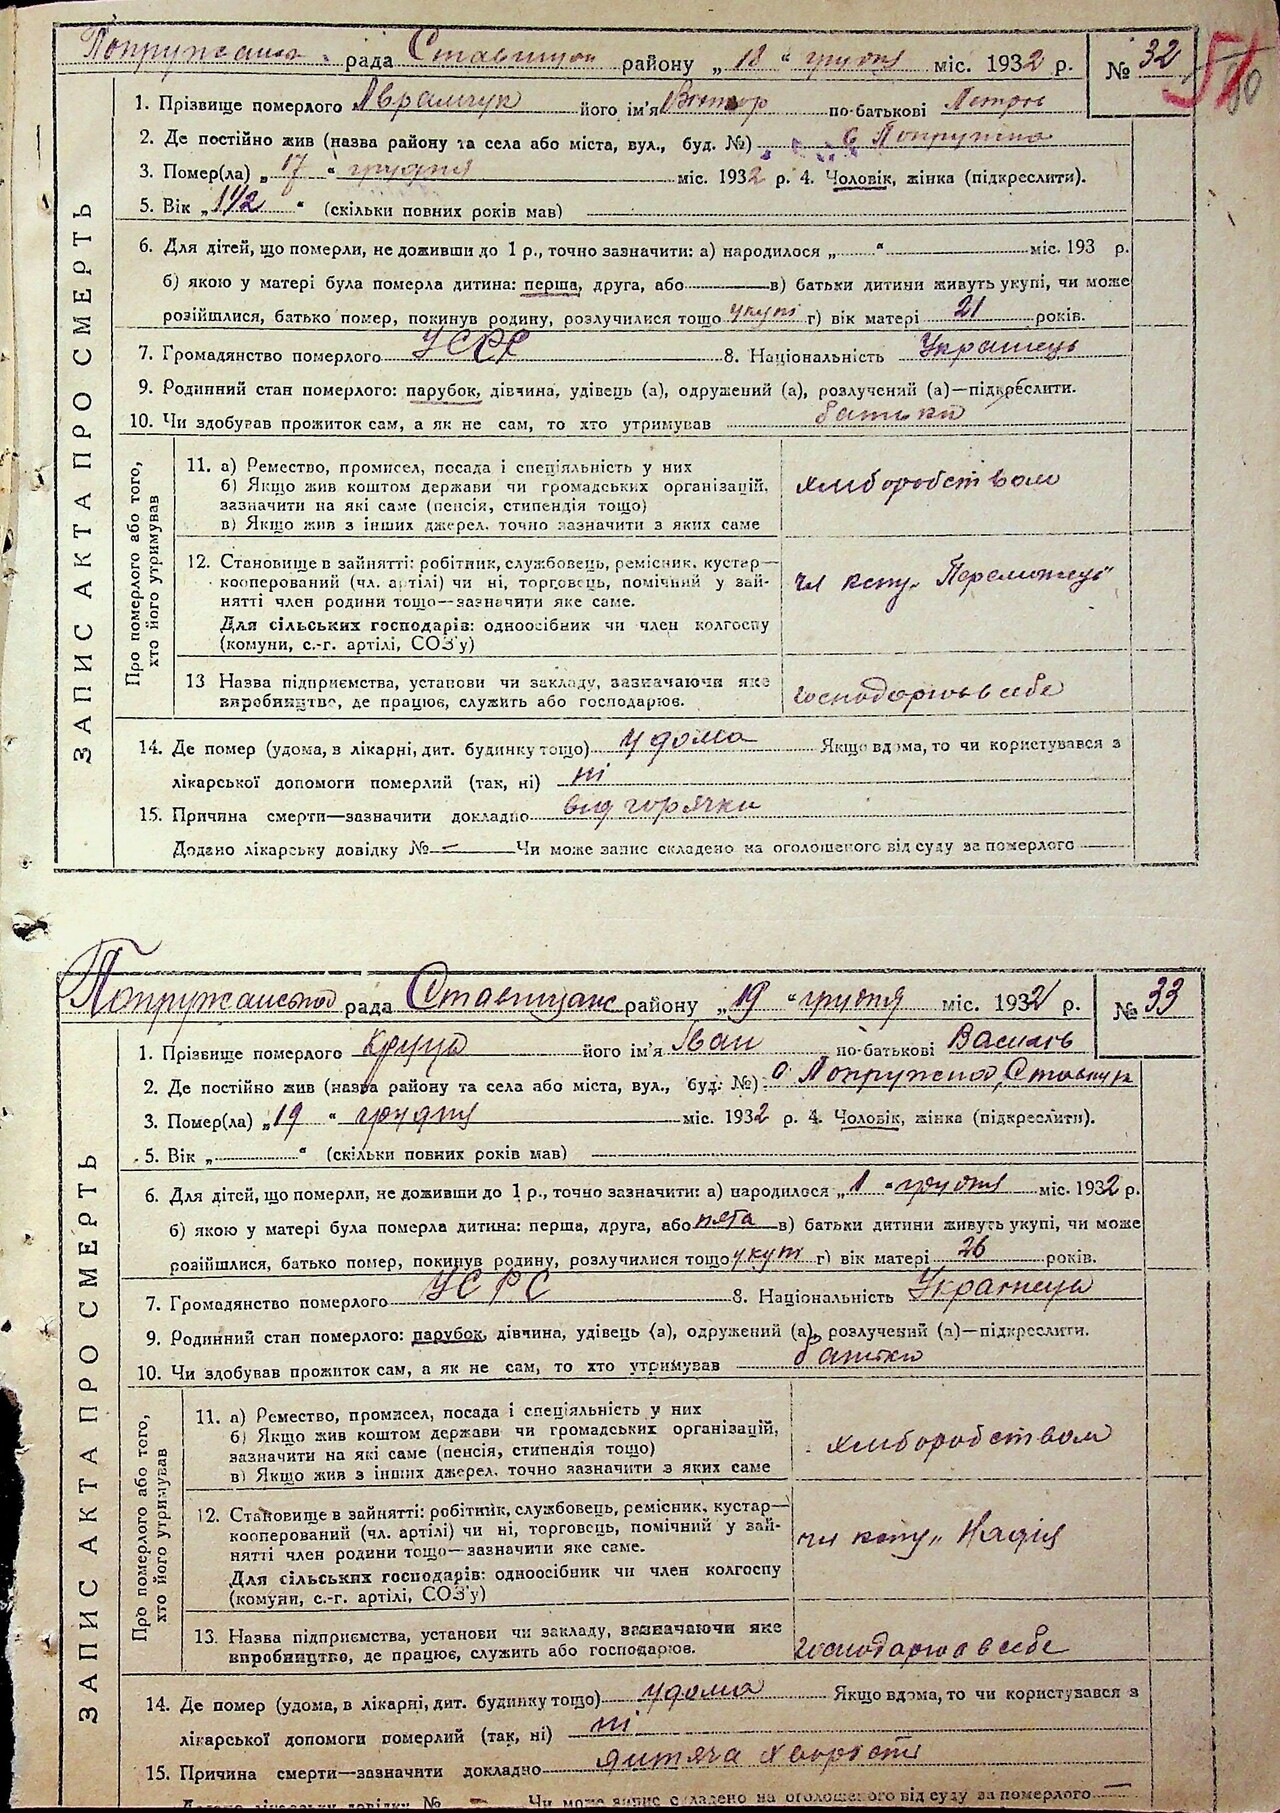 Попружанська рада Ставищан району „18“ грудня міс. 1932 р. № 32
51
60
ЗАПИС АКТА ПРО СМЕРТЬ
1. Прізвище померлого Аврамчук його ім'я Віктор по-батькові Петров
2. Де постійно жив (назва району та села або міста, вул., буд. №) с Попружна
3. Помер(ла) „17“ грудня міс. 1932 р. 4. Чоловік, жінка (підкреслити).
5. Вік „1 1/2“ (скільки повних років мав)
6. Для дітей, що померли, не доживши до 1 р., точно зазначити: а) народилося „ “ міс. 193 р.
б) якою у матері була померла дитина: перша, друга, або в) батьки дитини живуть укупі, чи може
розійшлися, батько помер, покинув родину, розлучилися тощо укупі г) вік матері 21 років.
7. Громадянство померлого УСРР 8. Національність Українець
9. Родинний стан померлого: парубок, дівчина, удівець (а), одружений (а), розлучений (а)—підкреслити.
10. Чи здобував прожиток сам, а як не сам, то хто утримував батьки
Про померлого або того, хто його утримував
11. а) Ремество, промисел, посада і спеціяльність у них
б) Якщо жив коштом держави чи громадських організацій,
зазначити на які саме (пенсія, стипендія тощо)
в) Якщо жив з інших джерел, точно зазначити з яких саме
хліборобством
12. Становище в зайнятті: робітник, службовець, ремісник, кустар—
кооперований (чл. артілі) чи ні, торговець, помічний у зай-
нятті член родини тощо—зазначити яке саме.
Для сільських господарів: одноосібник чи член колгоспу
(комуни, с.-г. артілі, СОЗ'у)
чл колг.
13 Назва підприємства, установи чи закладу, зазначаючи яке
виробництво, де працює, служить або господарює.
господарює в себе
14. Де помер (удома, в лікарні, дит. будинку тощо) у дома Якщо вдома, то чи користувався з
лікарської допомоги померлий (так, ні) ні
15. Причина смерти—зазначити докладно від горячки
Додано лікарську довідку № — Чи може запис складено на оголошеного від суду за померлого
Попружанська рада Ставищанс району „19“ грудня міс. 1932 р. № 33
ЗАПИС АКТА ПРО СМЕРТЬ
1. Прізвище померлого його ім'я Іван по-батькові Василь
2. Де постійно жив (назва району та села або міста, вул., буд. №) с Попружна, Ставищ
3. Помер(ла) „19“ грудня міс. 1932 р. 4. Чоловік, жінка (підкреслити).
5. Вік „ “ (скільки повних років мав)
6. Для дітей, що померли, не доживши до 1 р., точно зазначити: а) народилося „1“ грудня міс. 1932 р.
б) якою у матері була померла дитина: перша, друга, або пята в) батьки дитини живуть укупі, чи може
розійшлися, батько помер, покинув родину, розлучилися тощо укупі г) вік матері 26 років.
7. Громадянство померлого УСРС 8. Національність Українець
9. Родинний стан померлого: парубок, дівчина, удівець (а), одружений (а), розлучений (а)—підкреслити.
10. Чи здобував прожиток сам, а як не сам, то хто утримував батьки
Про померлого або того, хто його утримував
11. а) Ремество, промисел, посада і спеціяльність у них
б) Якщо жив коштом держави чи громадських організацій,
зазначити на які саме (пенсія, стипендія тощо)
в) Якщо жив з інших джерел, точно зазначити з яких саме
хліборобством
12. Становище в зайнятті: робітник, службовець, ремісник, кустар—
кооперований (чл. артілі) чи ні, торговець, помічний у зай-
нятті член родини тощо—зазначити яке саме.
Для сільських господарів: одноосібник чи член колгоспу
(комуни, с.-г. артілі, СОЗ'у)
чл колг „Надія
13. Назва підприємства, установи чи закладу, зазначаючи яке
виробництво, де працює, служить або господарює.
господарює в себе
14. Де помер (удома, в лікарні, дит. будинку тощо) удома Якщо вдома, то чи користувався з
лікарської допомоги померлий (так, ні) ні
15. Причина смерти—зазначити докладно дитяча хворість
Додано лікарську довідку № — Чи може запис складено на оголошеного від суду за померлого —